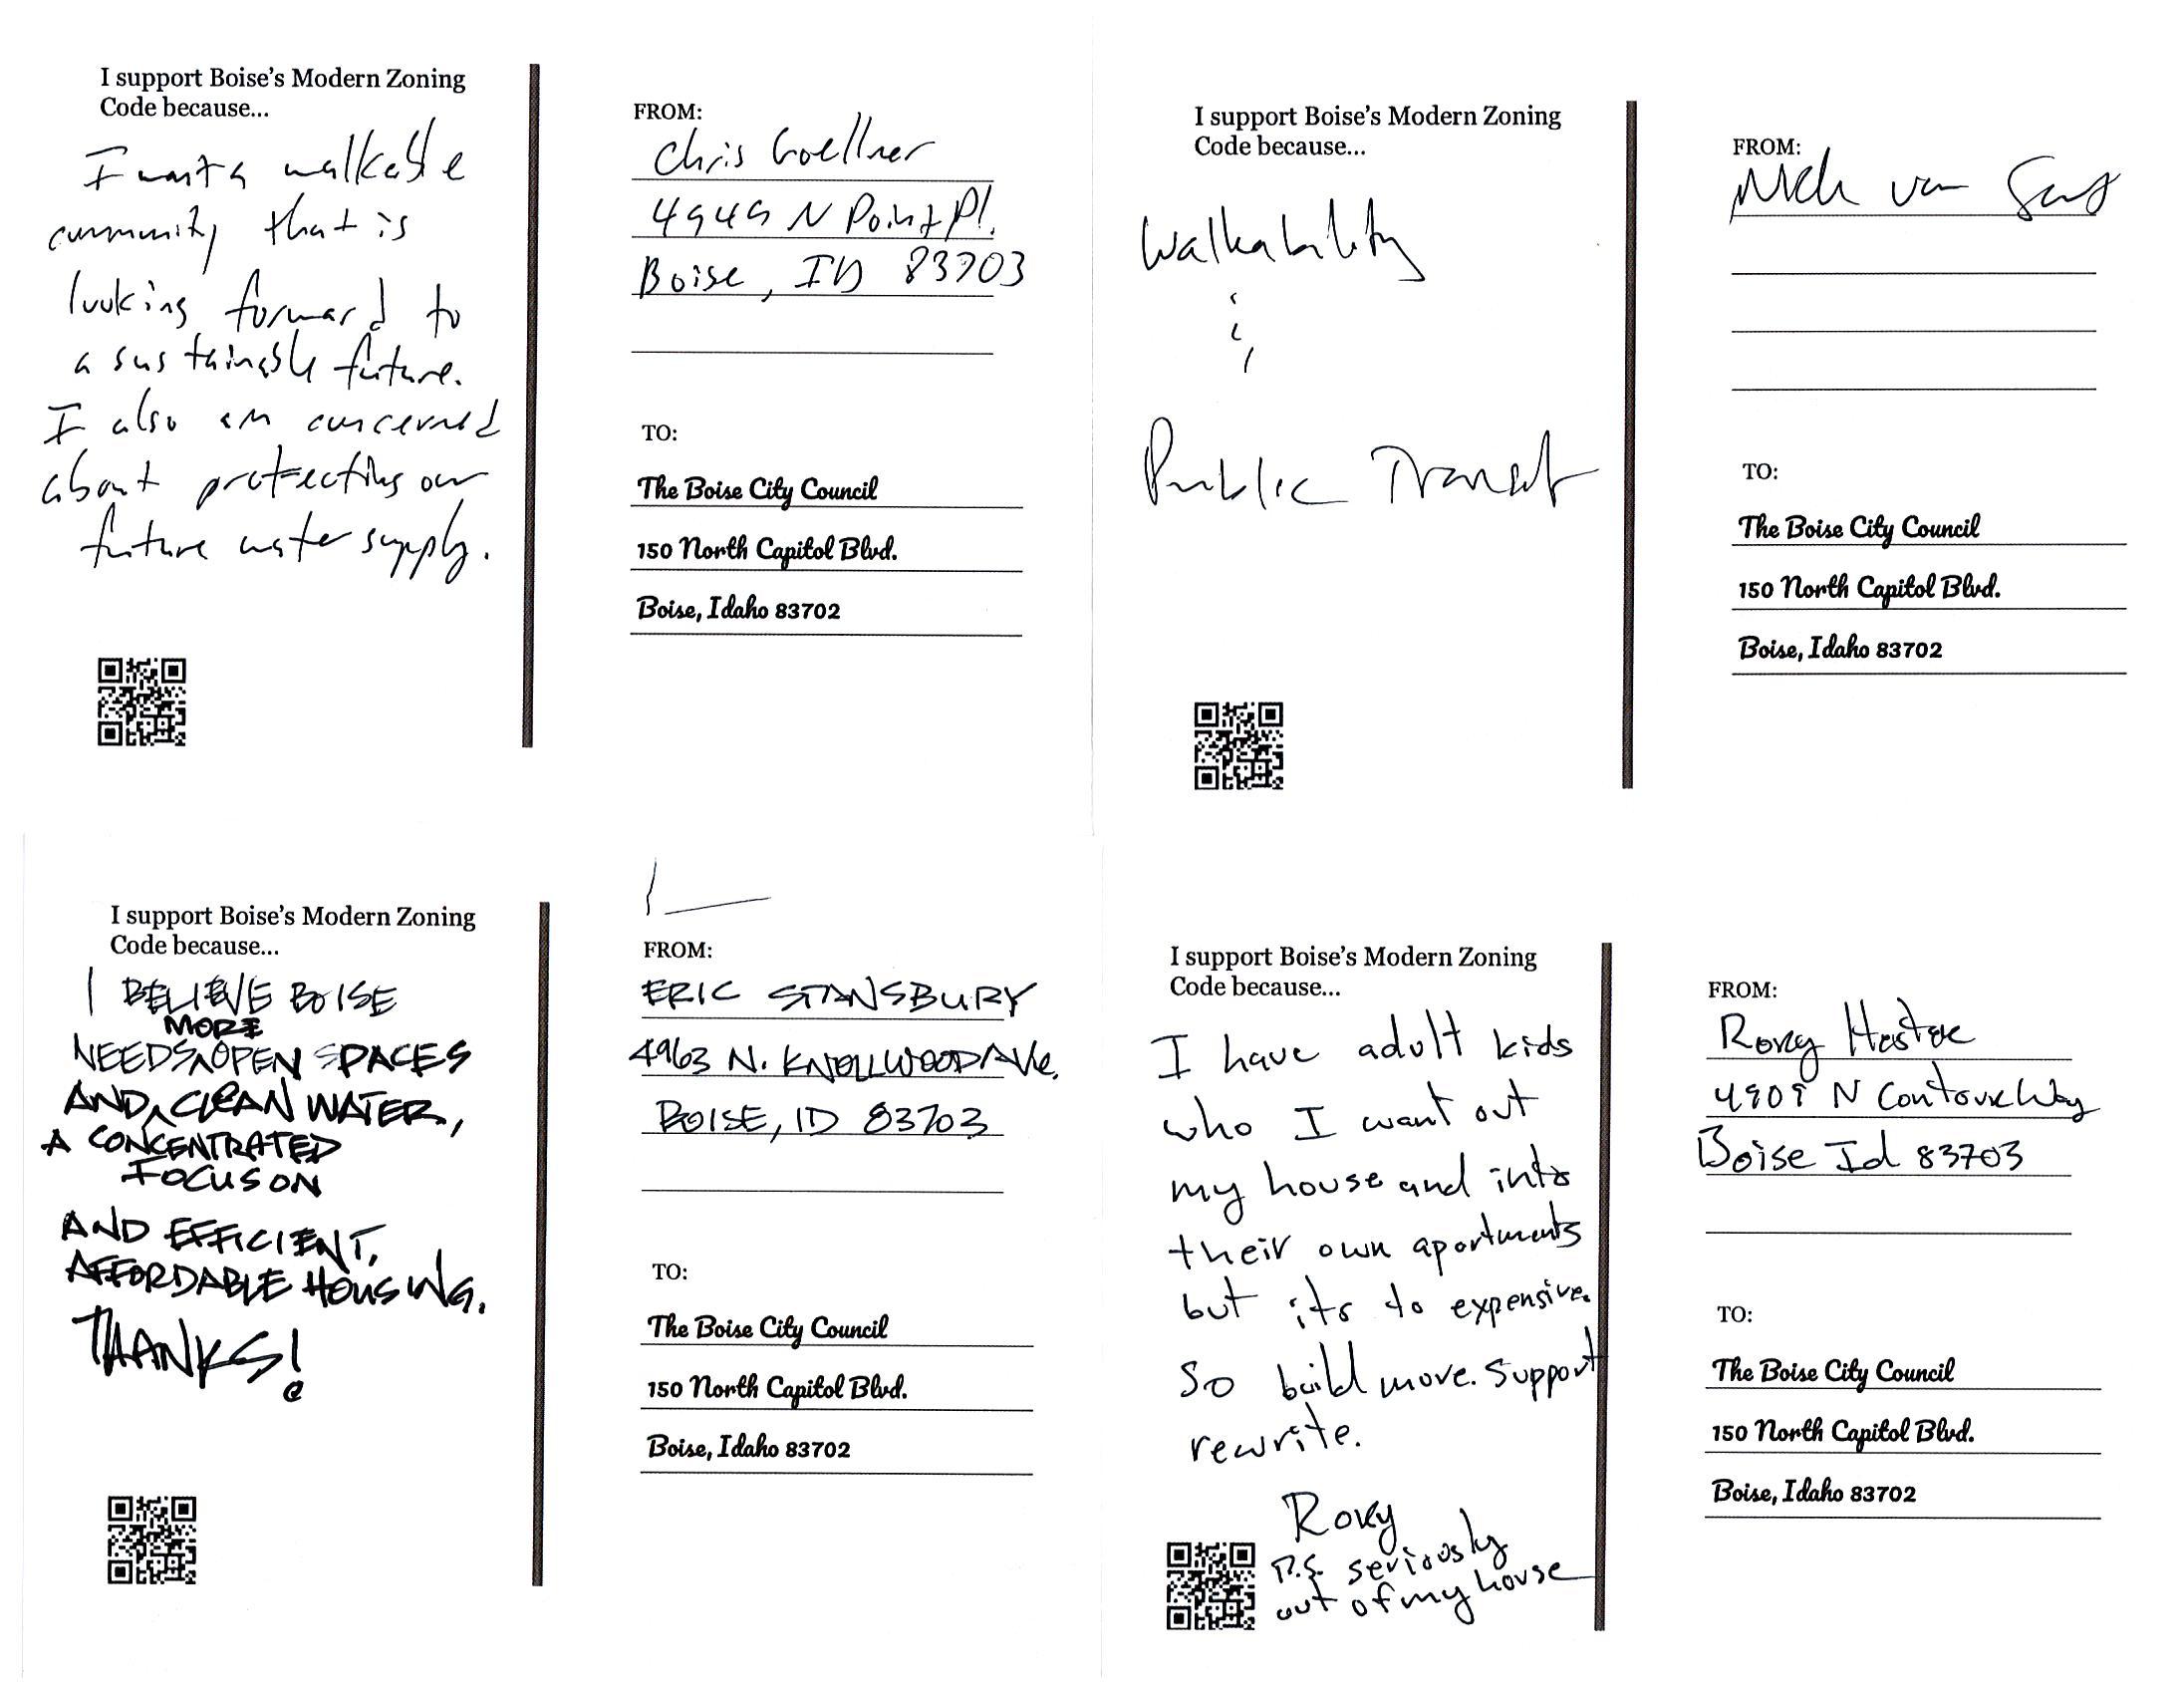 I support Boise's Modern Zoning
Code because...
I want a walkable
community that is
looking forward to
a sustainable future.
I also am concerned
about protecting our
future water supply.
FROM:
Chris Goellner
4949 N Point Pl.
Boise, ID 83703
TO:
The Boise City Council
150 North Capitol Blvd.
Boise, Idaho 83702
I support Boise's Modern Zoning
Code because...
Walkability
Public Transit
FROM:
Nick van
TO:
The Boise City Council
150 North Capitol Blvd.
Boise, Idaho 83702
I support Boise's Modern Zoning
Code because...
I BELIEVE BOISE
MORE
NEEDS OPEN SPACES
AND CLEAN WATER,
A CONCENTRATED
FOCUS ON
AND EFFICIENT,
AFFORDABLE HOUSING.
THANKS!
FROM:
ERIC STANSBURY
4963 N. KNOLLWOOD AVE.
BOISE, ID 83703
TO:
The Boise City Council
150 North Capitol Blvd.
Boise, Idaho 83702
I support Boise's Modern Zoning
Code because...
I have adult kids
who I want out
my house and into
their own apartments
but its to expensive.
So build more. Support
rewrite.
Roxy
P.S. seriously
out of my house
FROM:
Roxy
4909 N Contour Way
Boise Id 83703
TO:
The Boise City Council
150 North Capitol Blvd.
Boise, Idaho 83702